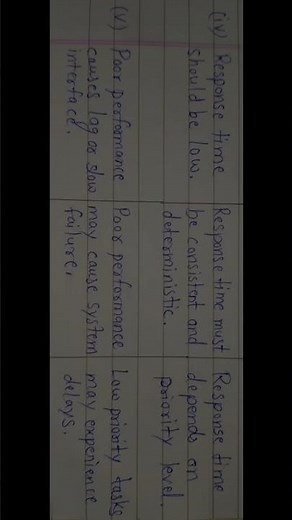 (iv) Response time should be low.
Response time must be consistent and deterministic.
Response time depends on priority level.
(v) Poor performance causes lag or slow interface.
Poor performance may cause system failure.
Low priority tasks may experience delays.